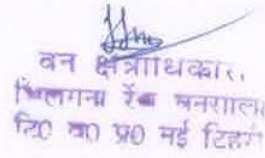 वन क्षेत्राधिकारी,
भिलंगना रेंज घनसाली
टि० वा० प्र० नई टिहरी